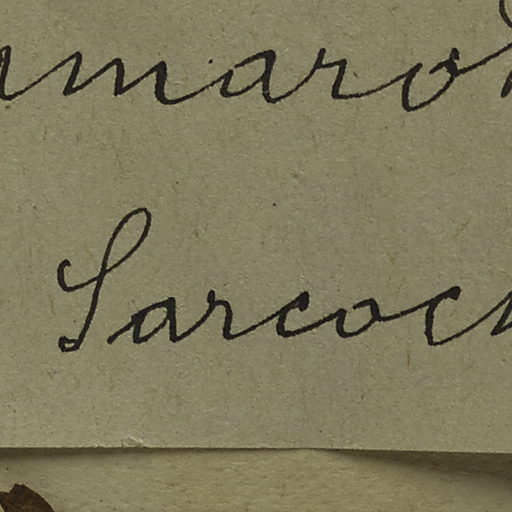 amaro
Sarcoc